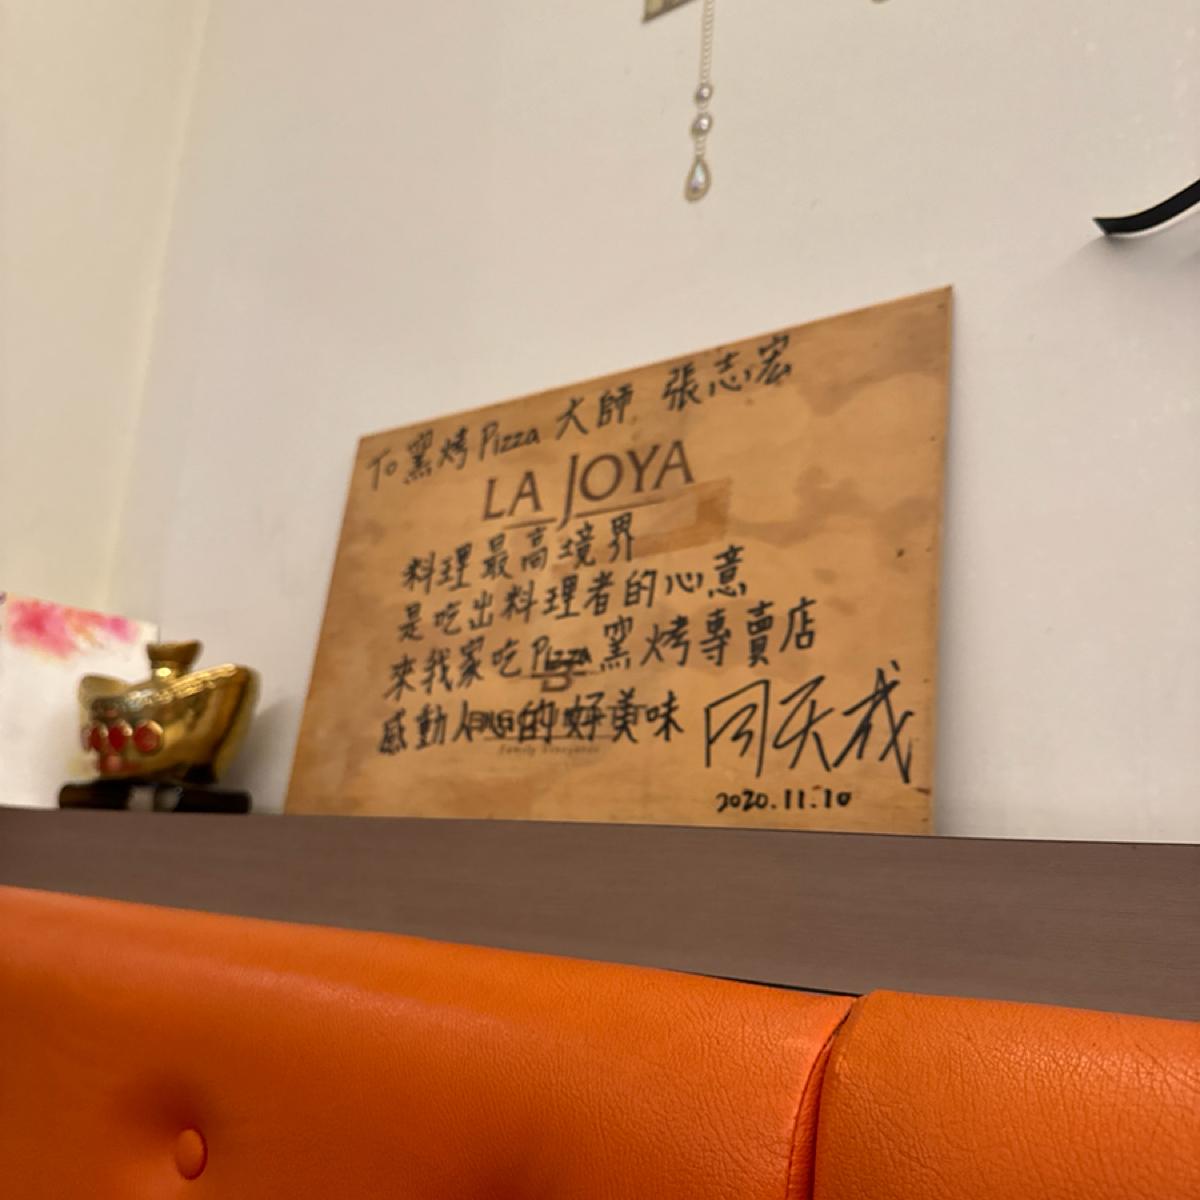 To 窯烤 Pizza 大師 張志宏
LA JOYA
料理最高境界
是吃出料理者的心意
來我家吃 Pizza 窯烤專賣店
感動人心的好美味
2020.11.10